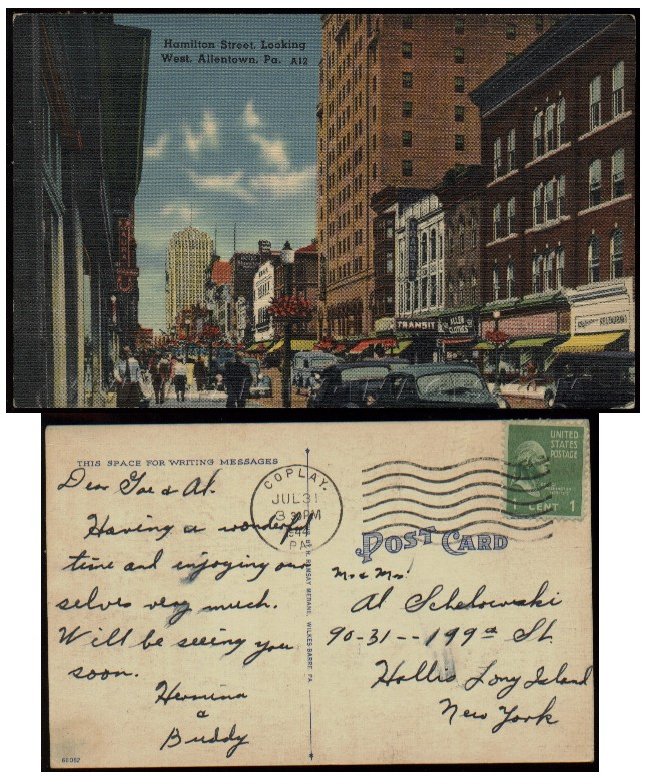 Hamilton Street, Looking
West, Allentown, Pa. A12
TRANSIT
ALLEN
RESTAURANT
THIS SPACE FOR WRITING MESSAGES
Dear Gae & Al.
Having a wonderful
time and enjoying our
selves very much.
Will be seeing you
soon.
Hermina
&
Buddy
60092
COPLAY.
JUL 31
3 30PM
1944
PA
UNITED
STATES
POSTAGE
1 CENT 1
POST CARD
Mr & Mrs
Al Schelowski
90-31--199th St.
Hollis Long Island
New York